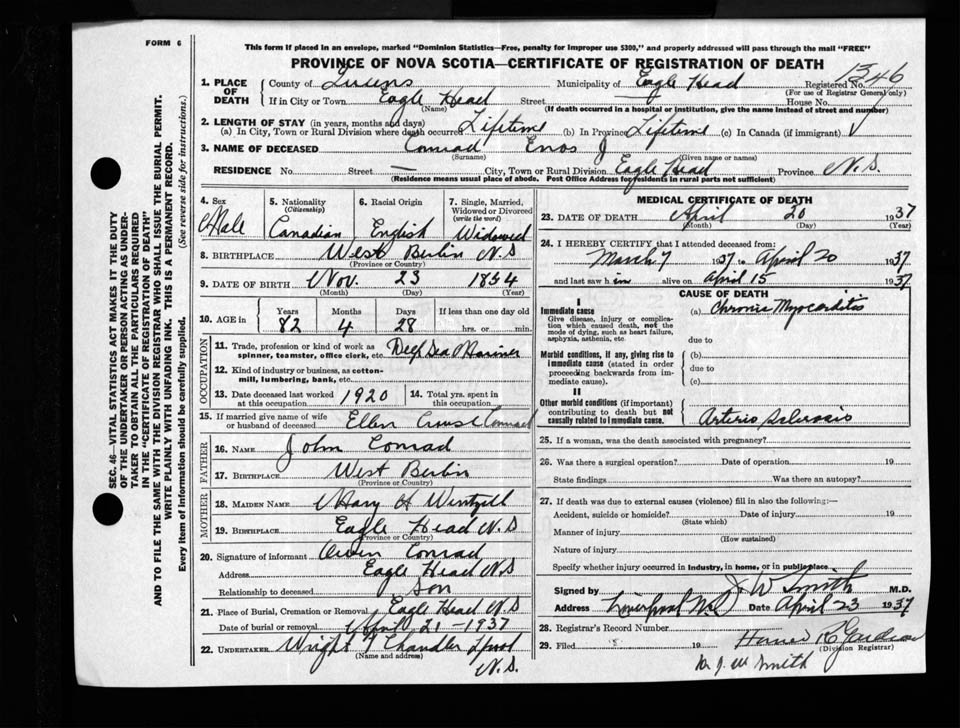 FORM 6
This form if placed in an envelope, marked "Dominion Statistics—Free, penalty for improper use $300," and properly addressed will pass through the mail "FREE"
PROVINCE OF NOVA SCOTIA—CERTIFICATE OF REGISTRATION OF DEATH
1. PLACE OF DEATH County of Queens Municipality of Eagle Head Registered No. 1346
(For use of Registrar General only)
If in City or Town Eagle Head Street House No.
(Name) (If death occurred in a hospital or institution, give the name instead of street and number)
2. LENGTH OF STAY (in years, months and days)
(a) In City, Town or Rural Division where death occurred Lifetime (b) In Province Lifetime (c) In Canada (if immigrant)
3. NAME OF DECEASED Conrad Enos J
(Surname) (Given name or names)
RESIDENCE No. Street — City, Town or Rural Division Eagle Head Province N.S.
(Residence means usual place of abode. Post Office Address for residents in rural parts not sufficient)
SEC. 46—VITAL STATISTICS ACT MAKES IT THE DUTY
OF THE UNDERTAKER OR PERSON ACTING AS UNDER-
TAKER TO OBTAIN ALL THE PARTICULARS REQUIRED
IN THE "CERTIFICATE OF REGISTRATION OF DEATH"
AND TO FILE THE SAME WITH THE DIVISION REGISTRAR WHO SHALL ISSUE THE BURIAL PERMIT.
WRITE PLAINLY WITH UNFADING INK. THIS IS A PERMANENT RECORD.
Every item of information should be carefully supplied. (See reverse side for instructions.)
4. Sex 5. Nationality (Citizenship) 6. Racial Origin 7. Single, Married, Widowed or Divorced (write the word)
Male Canadian English Widowed
8. BIRTHPLACE West Berlin N.S
(Province or Country)
9. DATE OF BIRTH Nov. 23 1854
(Month) (Day) (Year)
10. AGE in Years Months Days If less than one day old
82 4 28 hrs. or min.
OCCUPATION
11. Trade, profession or kind of work as
spinner, teamster, office clerk, etc. Deep Sea Mariner
12. Kind of industry or business, as cotton-
mill, lumbering, bank, etc.
13. Date deceased last worked at this occupation 1920 14. Total yrs. spent in this occupation
15. If married give name of wife or husband of deceased Ellen Crouse Conrad
FATHER
16. NAME John Conrad
17. BIRTHPLACE West Berlin
(Province or Country)
MOTHER
18. MAIDEN NAME Mary A
19. BIRTHPLACE Eagle Head N.S
(Province or Country)
20. Signature of informant Owen Conrad
Address Eagle Head N.S
Relationship to deceased Son
21. Place of Burial, Cremation or Removal Eagle Head N.S
Date of burial or removal April 21-1937
22. UNDERTAKER Wright & Chandler Lpool
(Name and address) N.S.
MEDICAL CERTIFICATE OF DEATH
23. DATE OF DEATH April 20 1937
(Month) (Day) (Year)
24. I HEREBY CERTIFY that I attended deceased from:
March 7 1937 to April 20 1937
and last saw him alive on April 15 1937
CAUSE OF DEATH
I
Immediate cause (a) Chronic Myocarditis
Give disease, injury or complica-
tion which caused death, not the
mode of dying, such as heart failure,
asphyxia, asthenia, etc. due to
Morbid conditions, if any, giving rise to (b)
immediate cause (stated in order due to
proceeding backwards from im-
mediate cause). (c)
II
Other morbid conditions (if important)
contributing to death but not
causally related to immediate cause. Arterio Sclerosis
25. If a woman, was the death associated with pregnancy?
26. Was there a surgical operation? Date of operation 19
State findings Was there an autopsy?
27. If death was due to external causes (violence) fill in also the following:—
Accident, suicide or homicide? Date of injury 19
(State which)
Manner of injury
(How sustained)
Nature of injury
Specify whether injury occurred in industry, in home, or in public place
Signed by J W Smith M.D.
Address Liverpool NS Date April 23 1937
28. Registrar's Record Number
29. Filed 19
(Division Registrar)
Dr J. W Smith